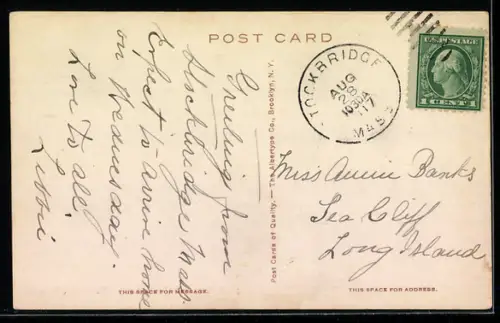 POST CARD
Greeting from
Stockbridge Mass.
Expect to arrive home
on Wednesday.
Love to all,
THIS SPACE FOR MESSAGE.
Post Cards of Quality. — The Albertype Co., Brooklyn, N.Y.
TOCKBRIDGE
AUG
28
1030A
'17
MASS
U.S. POSTAGE
1 CENT 1
Miss Annie Banks
Sea Cliff
Long Island
THIS SPACE FOR ADDRESS.